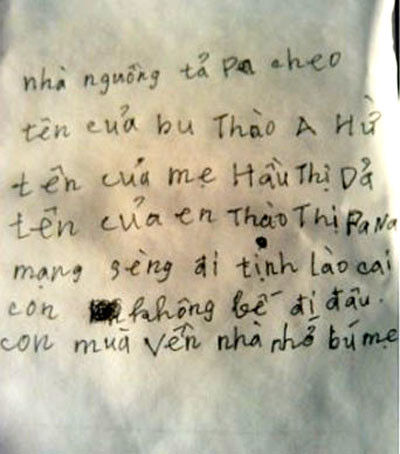 nhà nguồng tả Pa cheo
tên cuả bu Thào A Hử
tền cuả mẹ Hầu Thị Dả
tền cuả en Thào Thị Pa Na
mạng sèng đi tịnh lào cai
con không bế đi đâu.
con muà vền nhà nhở bú mẹ